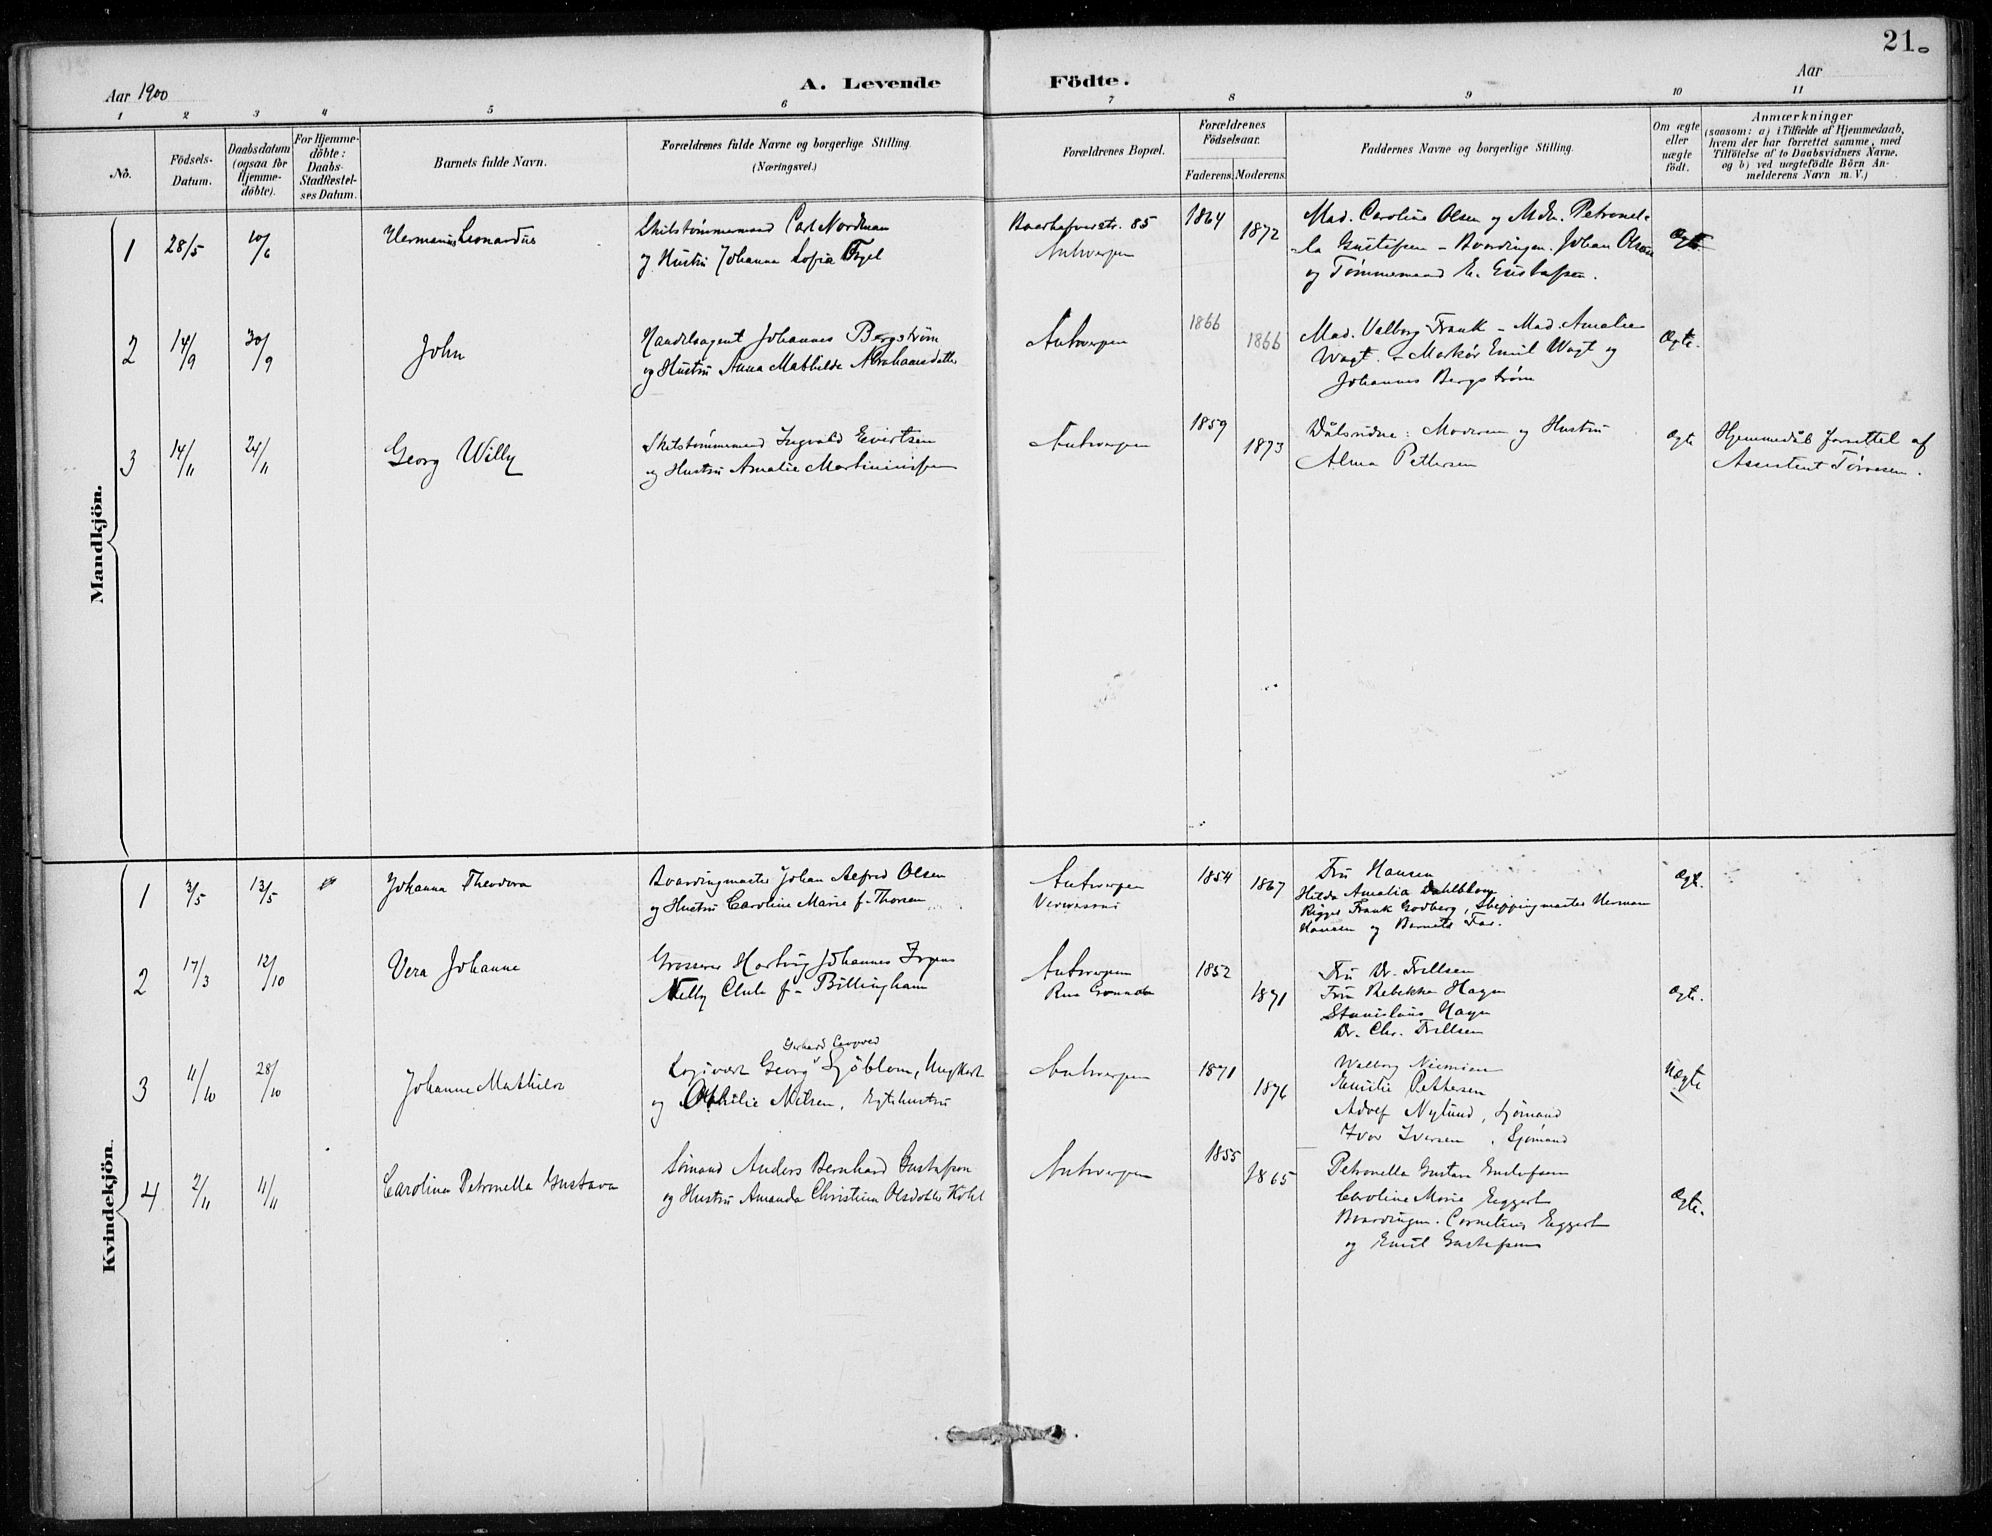 21.
Aar 1900
A. Levende Födte.
Aar
1 2 3 4 5 6 7 8 9 10 11
No.
Födsels-
Datum.
Daabsdatum
(ogsaa for
Hjemme-
döbte).
For Hjemme-
döbte:
Daabs-
Stadfæstel-
ses Datum.
Barnets fulde Navn.
Forældrenes fulde Navne og borgerlige Stilling.
(Næringsvei.)
Forældrenes Bopæl.
Forældrenes
Födselsaar.
Faderens. Moderens.
Faddernes Navne og borgerlige Stilling.
Om ægte
eller
uægte
födt.
Anmærkninger
(saasom: a) i Tilfælde af Hjemmedaab,
hvem der har forrettet samme, med
Tilföielse af to Daabsvidners Navne,
og b) ved uægtefödte Börn An-
melderens Navn m. V.)
Mandkjön.
1 28/5 10/6 Hermanus Leonardus
Skibstømmermand Carl Nordman
og Hustru Johanna Sofia Fogel
85
Antwerpen
1864 1872
Mad. Caroline Olsen og Mdm. Petronel-
la Gustafsen - Boardingm. Johan Olsen
og Tømmermand E. Gustafsen.
Ægte
2 14/9 30/9 John
Handelsagent Johannes Bergstrøm
og Hustru Anna Mathilde Abrahamsdatter
Antwerpen
1866 1866
Mad. Valborg Frank - Mad. Amalie
Wagt. - Markør Emil Wagt og
Johannes Bergstrøm
Ægte.
3 14/11 24/11 Georg Willy
Skibstømmermand Ingvald Evertsen
og Hustru Amalie
Antwerpen
1859 1873
Moderen og Hustru
Alma Pettersen
Ægte
Hjemmedåb forrettet af
Assistent Tønnesen.
Kvindekjön.
1 3/5 13/5 Johanna Theodora
Boardingmaster Johan Alfred Olsen
og Hustru Caroline Marie f. Thorsen
Antwerpen
1854 1867
Fru Hansen
Hilda Amalia Dahlblom
Rigger Frank Godberg, Shippingmaster Herman
Hansen og Barnets Far.
Ægte.
2 17/3 12/10 Vera Johanne
Grosserer Hartvig Johannes Irgens
Nelly f. Billingham
Antwerpen
Rue
1852 1871
Fru Dr. Trillsen
Fru Rebekka Hagen
Stanislaus Hagen
Dr. Chr. Trillsen
Ægte.
3 11/10 28/10 Johanne Mathilde
Gerhard
Georg Sjöblom, Ungkarl
og Othilie Nilsen,
Antwerpen
1871 1876
Walborg Nieminen
Emilie Pettersen
Adolf Nylund, Sjömand
Ivar Iversen, Sjömand
Uægte
4 2/11 11/11 Carolina Petronella Gustava
Sømand Anders Bernhard Gustafson
og Hustru Amanda Christina Olsdotter
Antwerpen
1855 1865
Petronella Gustava Gustafsen
Caroline Marie Eggert
Boardingm. Cornelius Eggert
og Emil Gustafsen
Ægte.